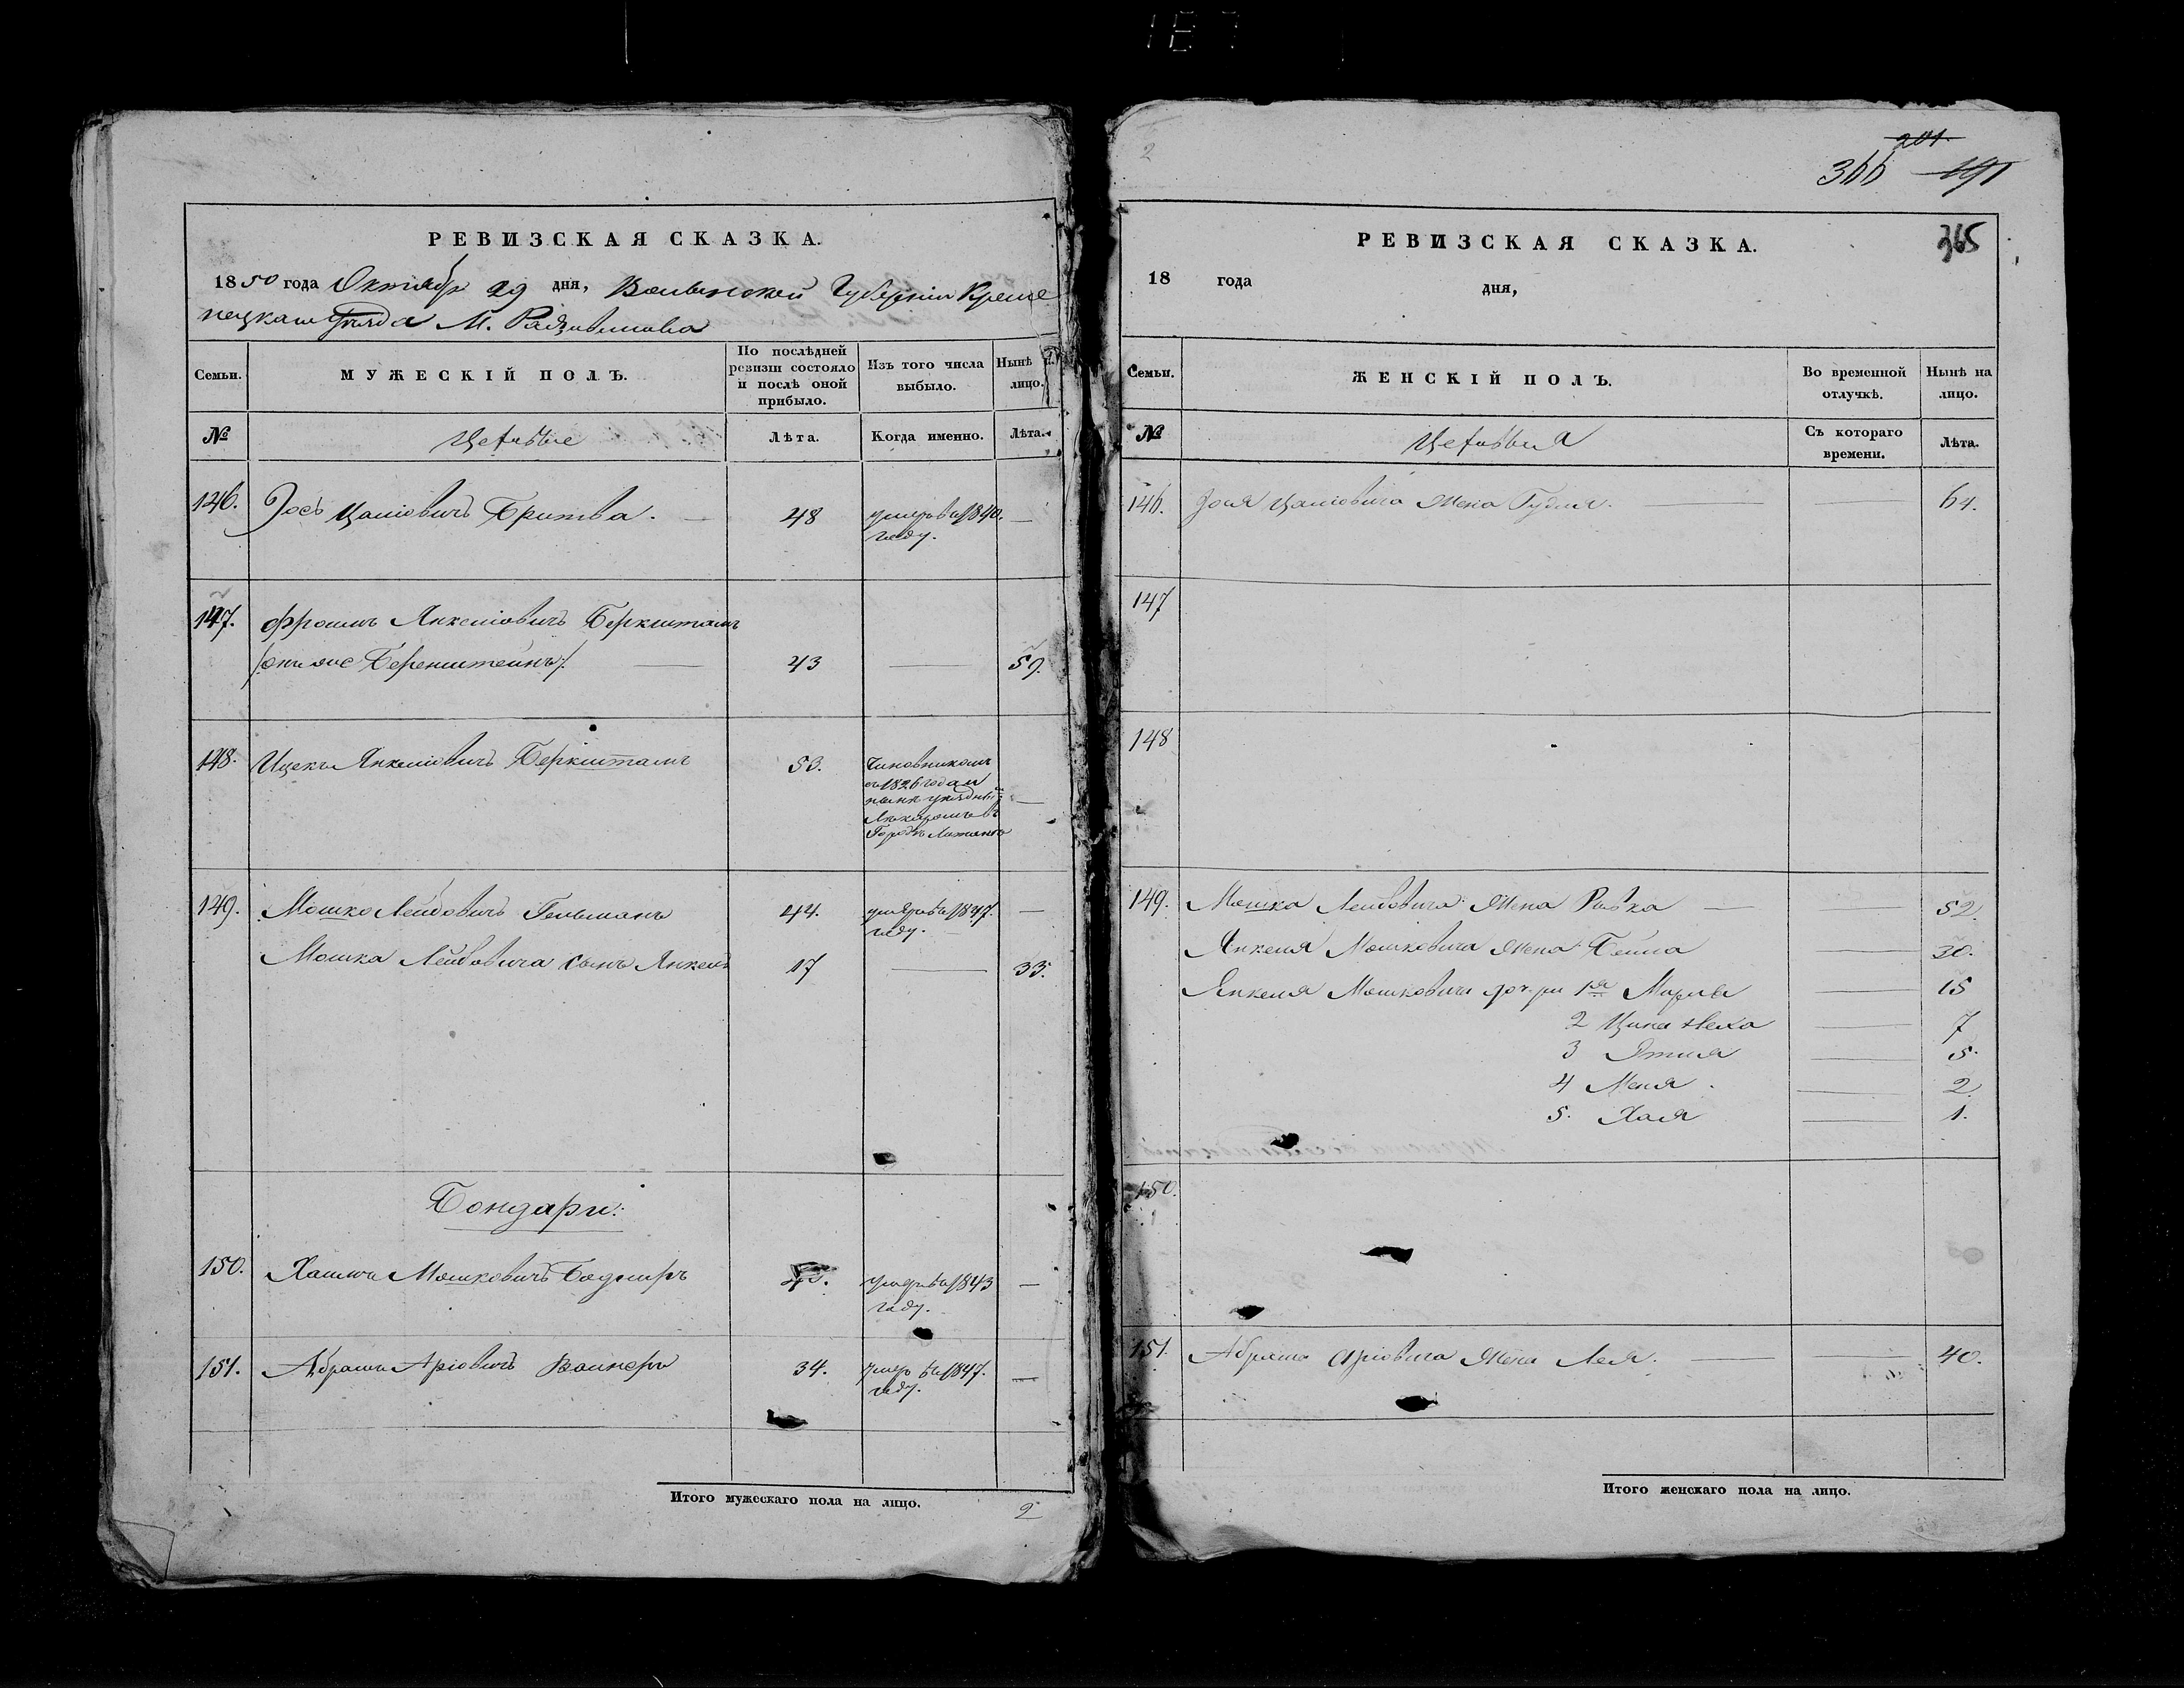 РЕВИЗСКАЯ СКАЗКА.
1850 года Октября 29 дня, Волынской Губернiи Креме
нецкаго Уѣзда М. Радзивилова
Семьи.
МУЖЕСКIЙ ПОЛЪ.
По послѣдней ревизiи состояло и послѣ оной прибыло.
Изъ того числа выбыло.
Нынѣ на лицо.
№
Цеховые
Лѣта.
Когда именно.
Лѣта.
146. Iось Цалiовичъ Бритва. — 48 умеръ въ 1840. —
году.
147. Фроимъ Янкелiовичъ Беркштамъ
/онъ же Беренштейнъ/. — 43 — 59.
148. Ицекъ Янкелiовичъ Беркштамъ 53. Чиновникомъ
съ 1826 года и
нынѣ уѣздный —
Лекаремъ въ
Городѣ
149. Мошко Лейбовичъ Гельманъ 44. умеръ въ 1847. —
году.
Мошка Лейбовича сынъ Янкель 17 — 33.
Бондари:
150. Хаимъ Мошковичъ Боднаръ умеръ въ 1843 —
году.
151. Абрамъ Арiовичъ Вайнеръ 34. умеръ въ 1847. —
году.
Итого мужескаго пола на лицо.
2
201.
366 191
365
РЕВИЗСКАЯ СКАЗКА.
18 года дня,
Семьи.
ЖЕНСКIЙ ПОЛЪ.
Во временной отлучкѣ.
Нынѣ на лицо.
№
Съ котораго времени.
Лѣта.
146. Цалiовича жена Гудля. — — 64.
147
148
149. Мошка Лейбовича жена Ривка — — 52.
Янкеля Мошковича жена Бейла — 30.
Янкеля Мошковича дочери 1я Марья — 15
2 Ципа Неха — 7
3 Этля — 5.
4 Меня. — 2.
5. Хая — 1.
150.
151. Абрама Арiовича жена Лея. — — 40.
Итого женскаго пола на лицо.